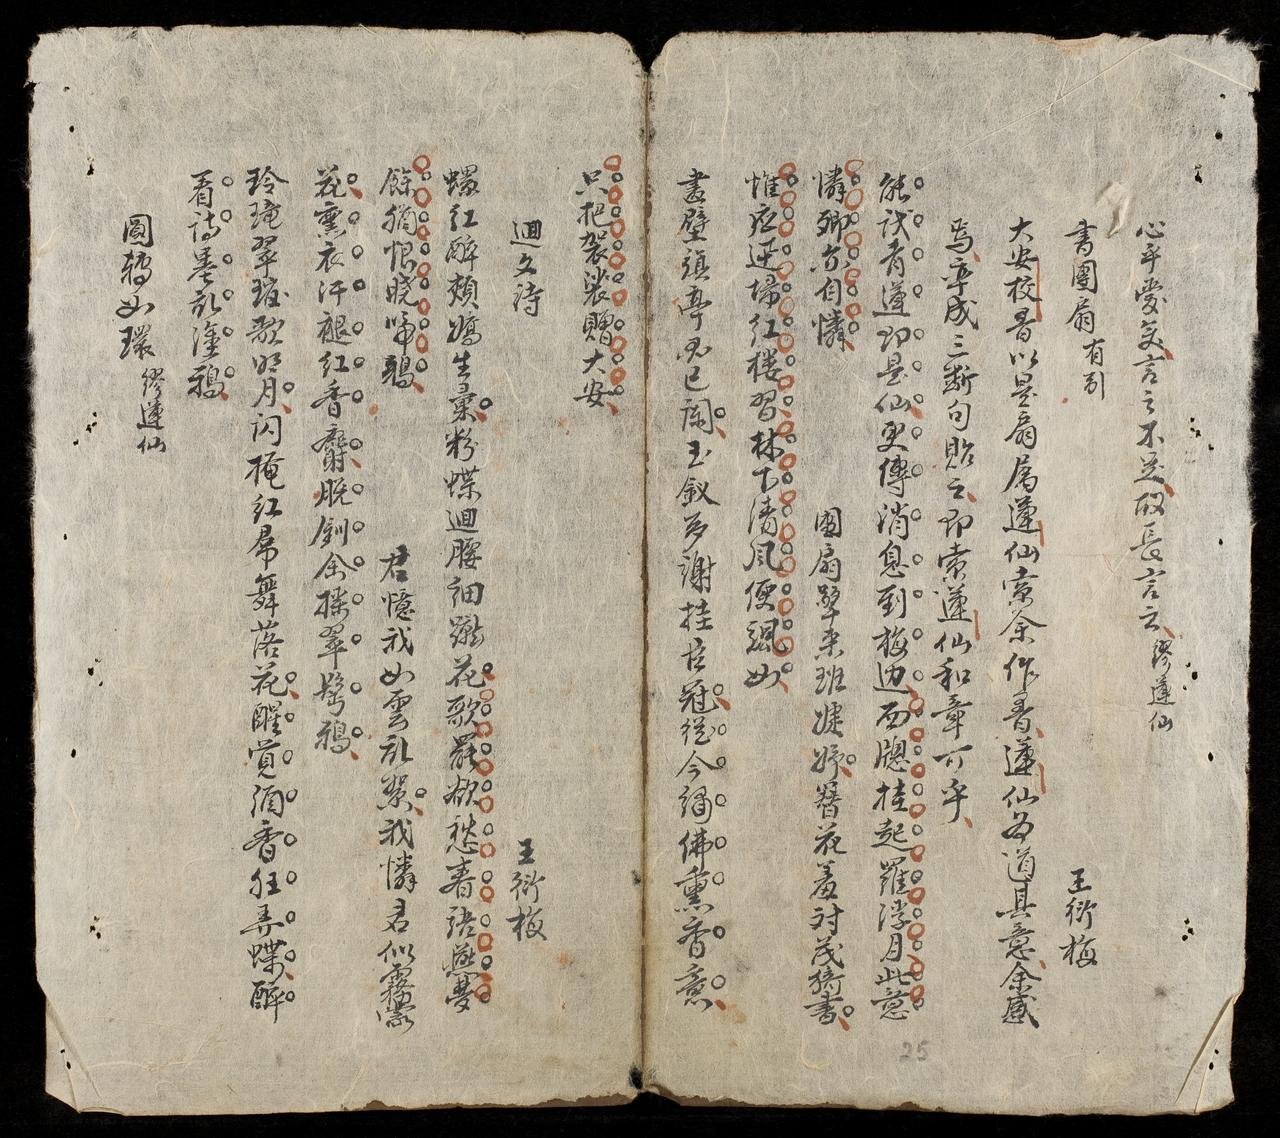 心乎愛矣言之不足故長言之 繆蓮仙
書團扇 有引 王衍梅
大安校書以是扇屬蓮仙索余作書蓮仙為道其意余感
焉率成三斷句貽之即索蓮仙和章可乎
能詩者蓮即是仙更傳消息到梅邊西牕挂起羅浮月此意
憐卿亦自憐 團扇犖來班婕妤簪花羞對茂猗書
惟應逆掃紅樓習林下清風便颯如
畫壁旗亭思已闌玉釵多謝挂臣冠從今繡佛熏香意
只把袈裟贈大安
迴文詩 王衍梅
螺紅醉頰嬌生暈粉蝶迴腰細蹴花歌罷欲愁春語燕夢
餘猶恨曉啼鴉 君憶我如雲亂縈我憐君似霧濛
花熏衣汗褪紅香麝脫釧金搽翠髩鴉
玲瓏翠琯歌明月閃掩紅屏舞落花醒覺酒香狂弄蝶醉
看詩墨亂塗鴉
圓轉如環 繆蓮仙
25